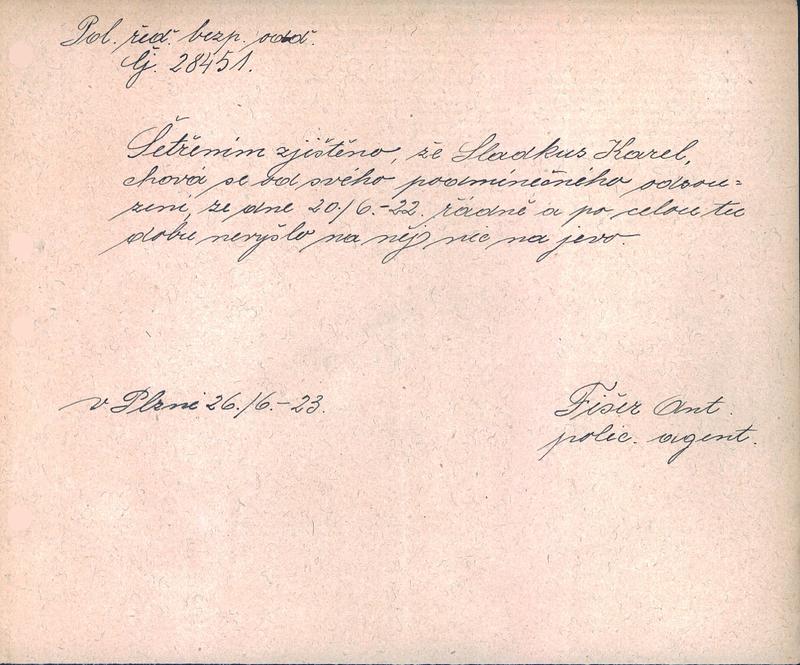 Pol. řed. bezp. odd.
Čj. 28451.
Šetřením zjištěno, že Sladkus Karel,
chová se od svého podmínečného odsou=
zení, ze dne 20./6.-22. řádně a po celou tu
dobu nevyšlo na něj nic na jevo.
v Plzni 26./6.-23.
Fišer Ant.
polic. agent.